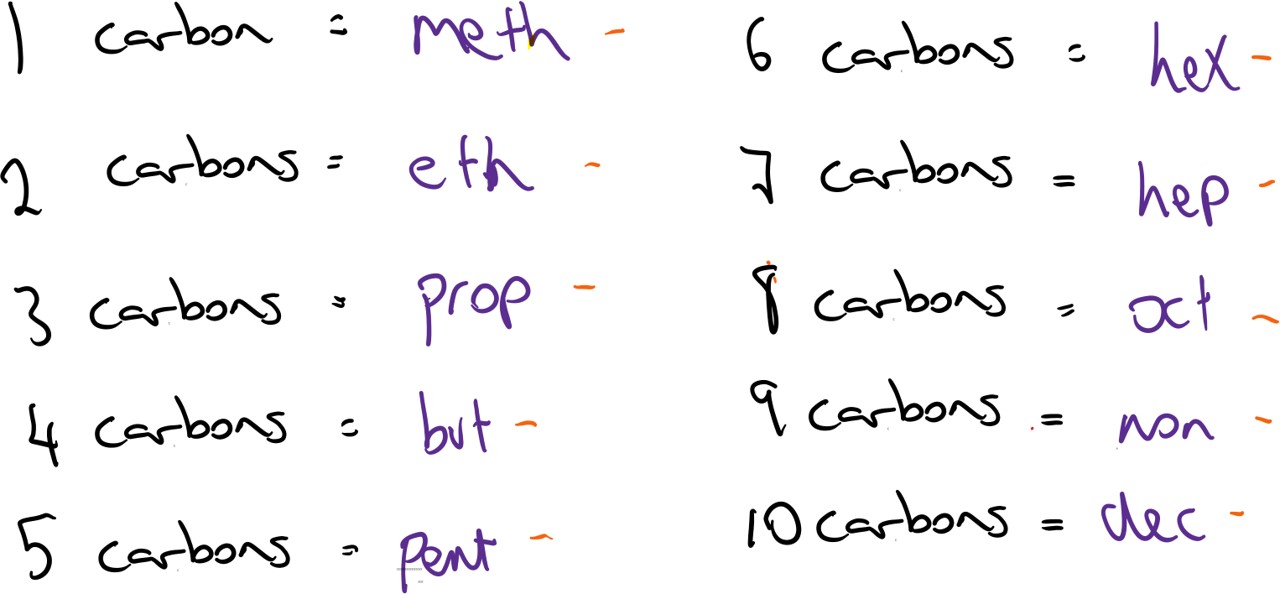 1 carbon = meth -
2 carbons = eth -
3 carbons = prop -
4 carbons = but -
5 carbons = pent -
6 carbons = hex -
7 carbons = hep -
8 carbons = oct -
9 carbons = non -
10 carbons = dec -